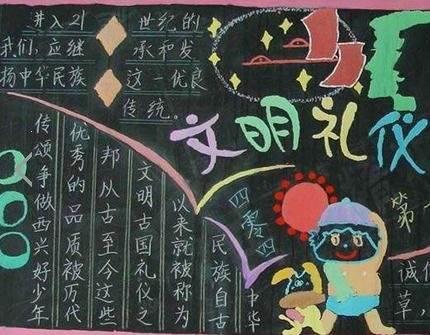 文明礼仪
进入21 世纪的
我们,应继 承和发
扬中华民族 这一优良
传统。
四零四
中华
民族自古
以来就被称为
文明古国礼仪之
邦从古至今这些
优秀的品质被历代
传颂争做西兴好少年
第
诚
草,